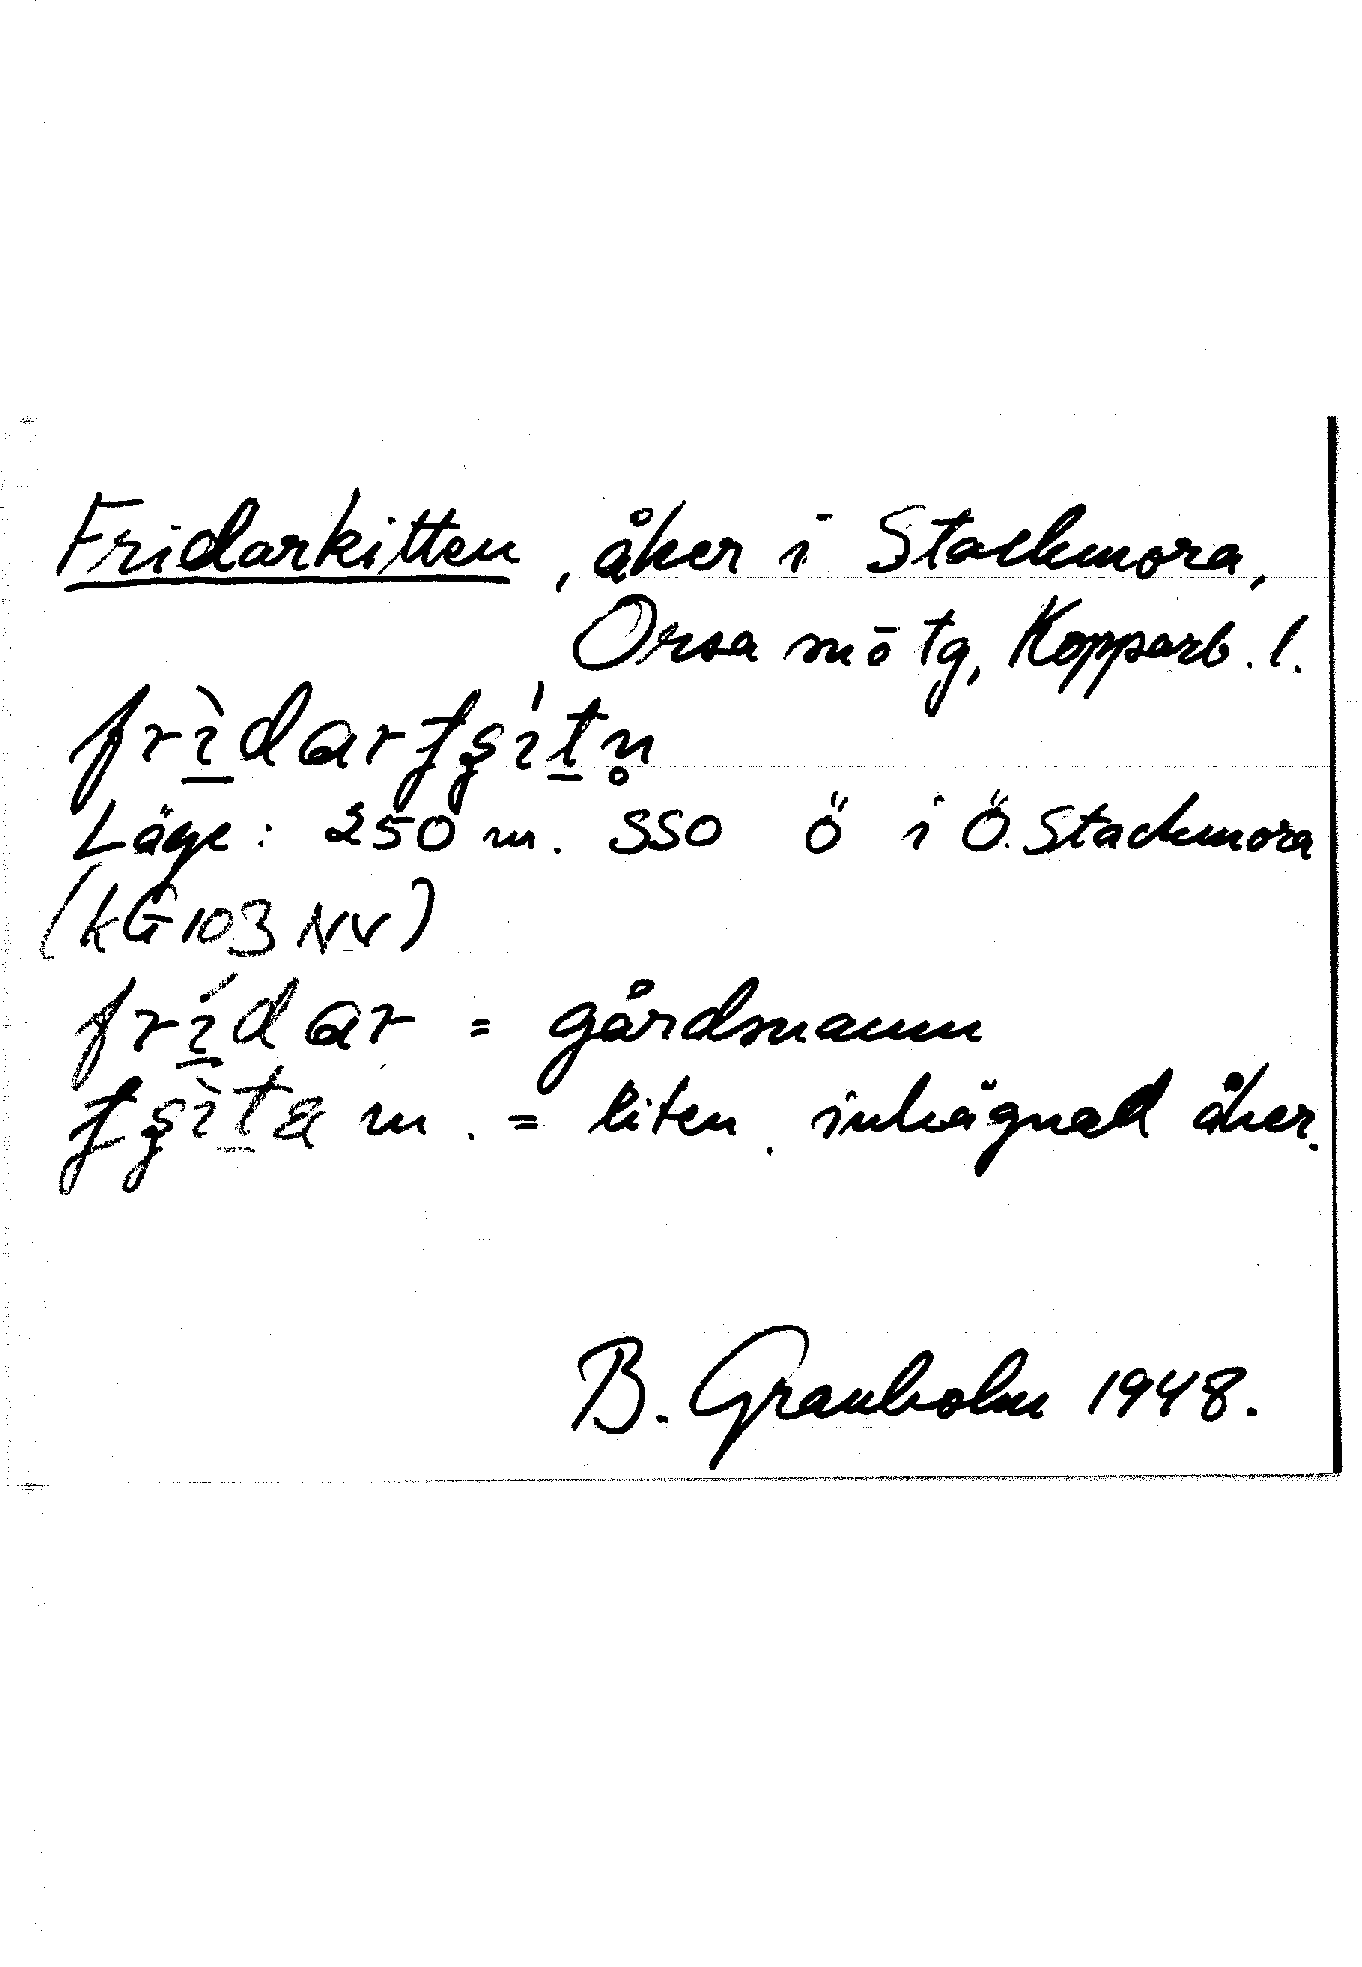 Fridarkitten, åker i Stackmora,
Orsa sn ö tg, Kopparb. l.
frìdarꞓʂítn̥
Läge: 250 m. SSO Ö i Ö. Stackmora
(kG 103 NV)
frídar = gårdsnamn
ʂìta m. = liten inhägnad åker.
B. Granholm 1948.